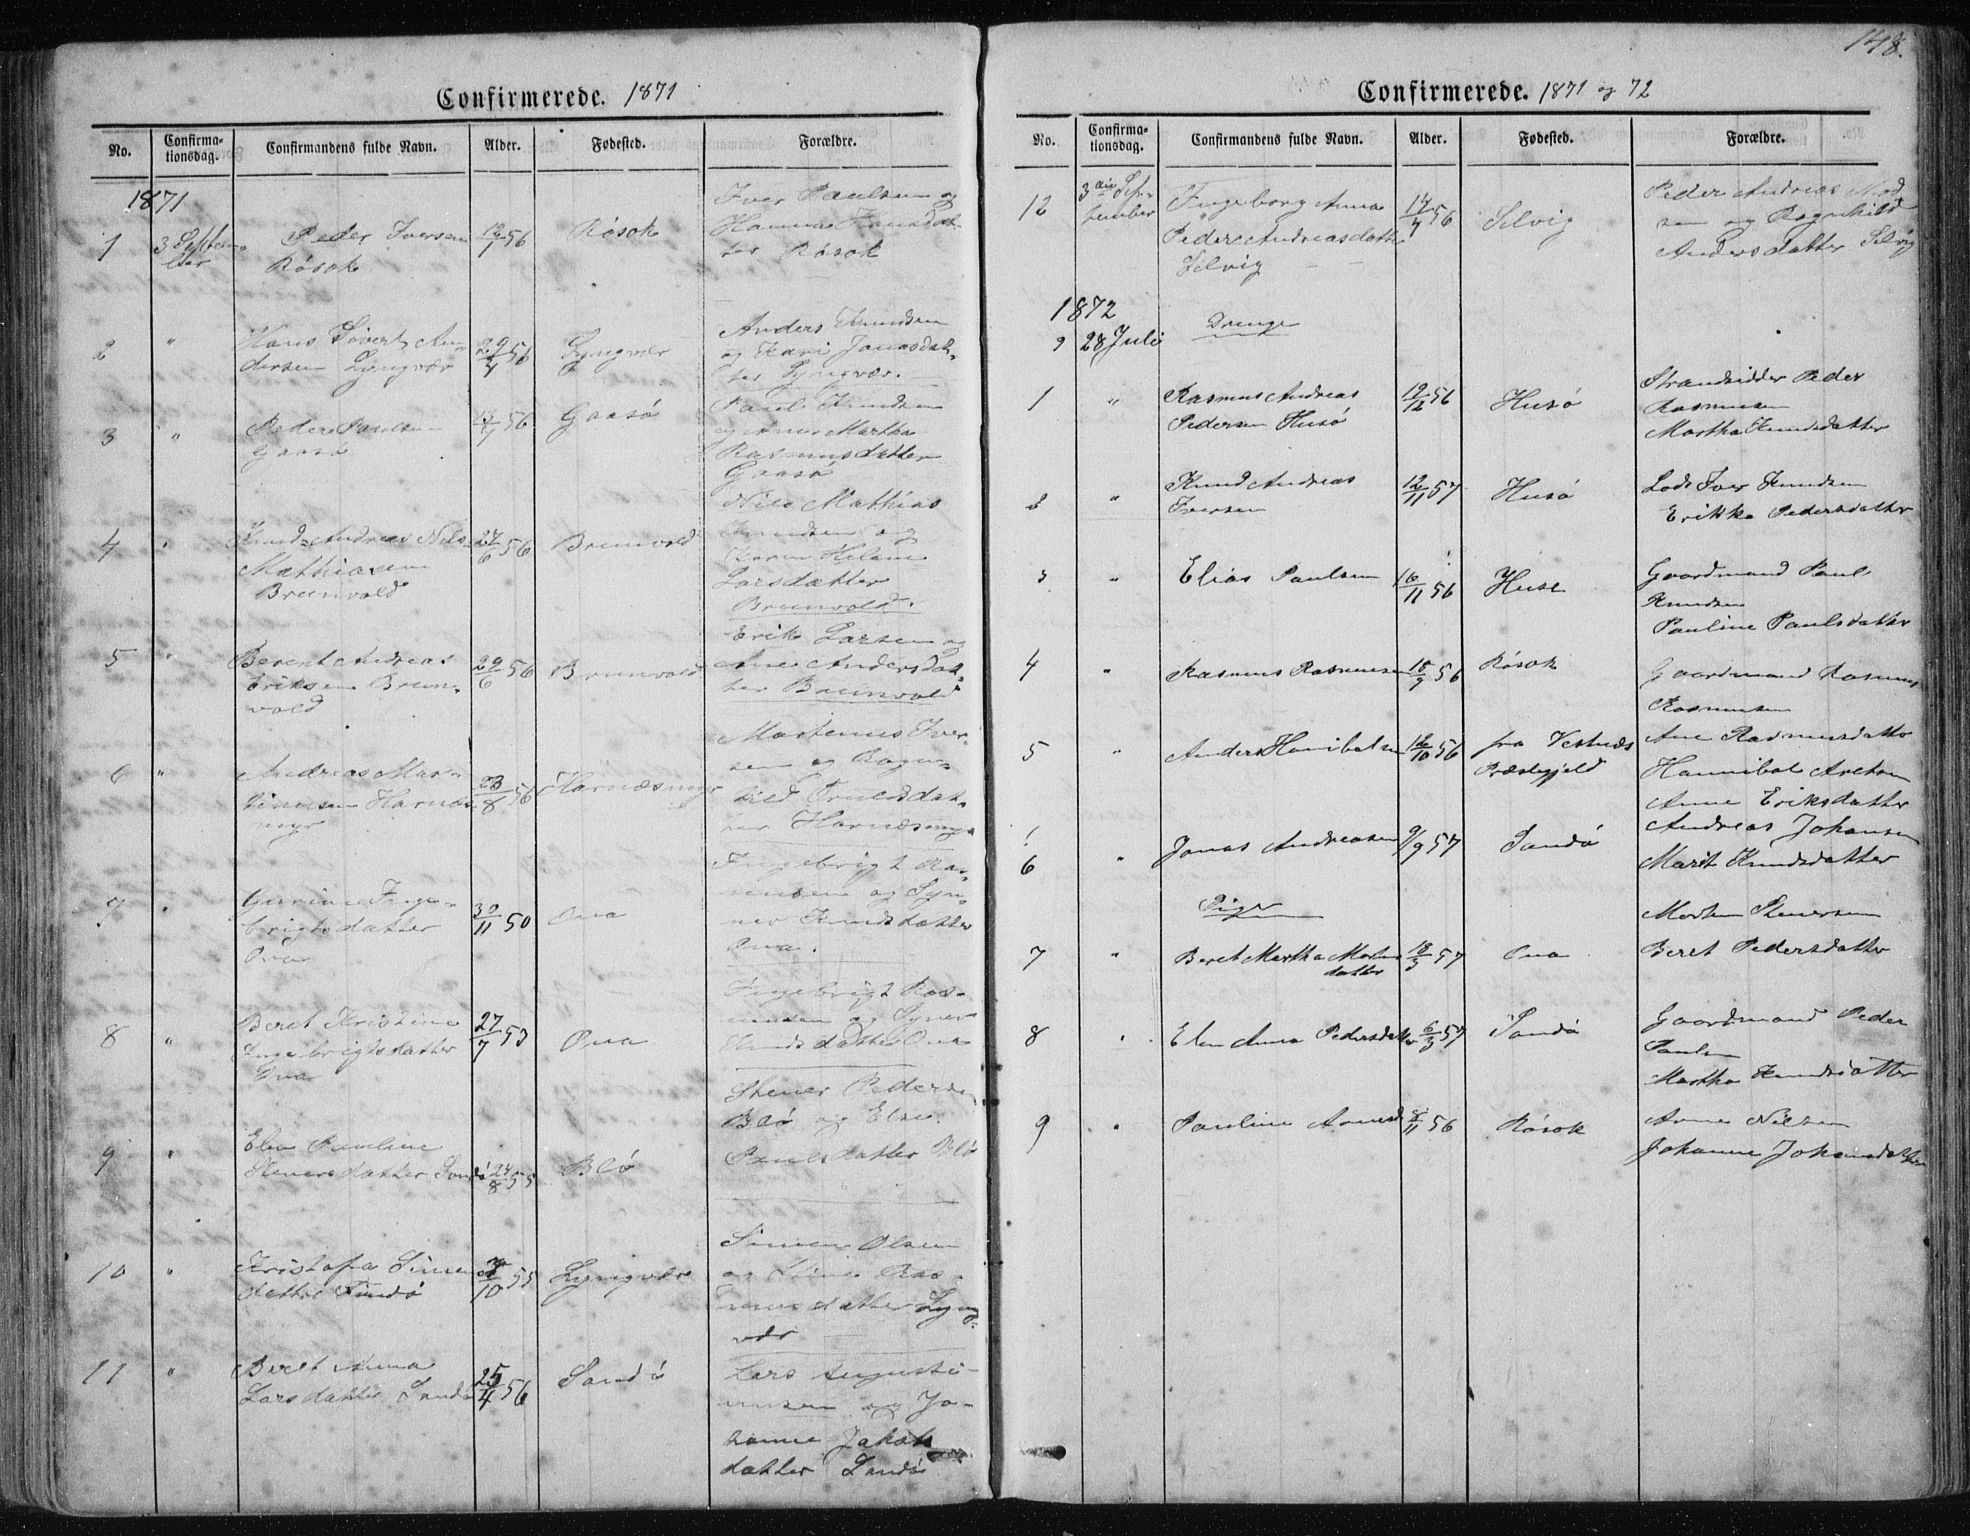 148.
Confirmerede. 1871
No.
Confirma-
tionsdag.
Confirmandens fulde Navn.
Alder.
Fødested.
Forældre.
1871
1
3 Septem-
ber
Peder Iversen
Røsok
56
Røsok
Iver Paulsen og
Hanna
ter Røsok
2
"
Hans Sivert An-
dersen Lyngvær
56
Lyngvær
Anders Knudsen
og Kari Jonasdat-
ter Lyngvær.
3
"
Peder Paulsen
Gaasø
56
Gaasø
Paul Knudsen
og Martha
Rasmusdatter
Gaasø
4
"
Knud Andreas Nils
Mathiasen
Brunvold
24/6 56
Brunvold
Nils Mathias
Knudsen og
Karen Helene
Larsdatter
Brunvold.
5
"
Berent Andreas
Eriksen Brun-
vold
29/6 56
Brunvold
Erik Larsen og
Ane Andersdat-
ter Brunvold
6
"
Andreas Mar-
tinusen Harnæs
myr
23/8 56
Harnæsmyr
Martinus Iver-
sen og Ragn-
hild
ter Harnæsmyr
7
"
Inge-
brigtsdatter
Ona
30/11 50
Ona
Ingebrigt Ras-
musen og Syn-
nev Knudsdatter
Ona.
8
"
Beret Kristine
Ingebrigtsdatter
Ona
27/7 53
Ona
Ingebrigt Ras-
musen og Synev
Knudsdatter Ona
9
"
Elen Pauline
Stenersdatter Sandø
24/8 55
Blø
Stener Peders
Blø og Elen
Paulsdatter Blø
10
"
Kristofa Simens
datter Sandø
/10 55
Lyngvær
Simen Olsen
og Ras-
musdatter Lyng-
vær
11
"
Beret Anna
Larsdatter Sandø
25/4 56
Sandø
Lars Augusti-
nusen og Jo-
hanne Jakobs
datter Sandø
Confirmerede. 1871 og 72
No.
Confirma-
tionsdag.
Confirmandens fulde Navn.
Alder.
Fødested.
Forældre.
12
3die Sep-
tember
Ingeborg Anna
Peder Andreasdatter
Selvig
14/4 56
Selvig
Peder Andreas Mad
sen og Ragnhild
Andersdatter Selvig
1872
28 Juli
Drenge
1
"
Rasmus Andreas
Pedersen Husø
12/12 56
Husø
Strandsidder Peder
Rasmusen
Martha Knudsdatter
2
"
Knud Andreas
Iversen
12/11 57
Husø
Lods Iver Knudsen
Erikke Pedersdatter
3
"
Elias Paulsen
16/11 56
Huse
Gaardmand Paul
Knudsen
Pauline Paulsdatter
4
"
Rasmus Rasmusen
/9 56
Røsok
Gaardmand Rasmus
Rasmusen
Ane Rasmusdatter
5
"
Anders Hanibalsen
/10 56
fra Vestnæs
Præstegjeld
Hannibal
Anne Eriksdatter
6
"
Jonas Andreasen
9/9 57
Sandø
Andreas Johansen
Marit Knudsdatter
Piger
7
"
Beret Martha Mortens
datter
18/3 57
Ona
Morten Stenersen
Beret Pedersdatter
8
"
Elen Anna Pedersdatter
6/3 57
Sandø
Gaardmand Peder
Paulsen
Martha Knudsdatter
9
"
Pauline Arnesd
8/11 56
Røsok
Arne Nilsen
Johanne Johansdatter